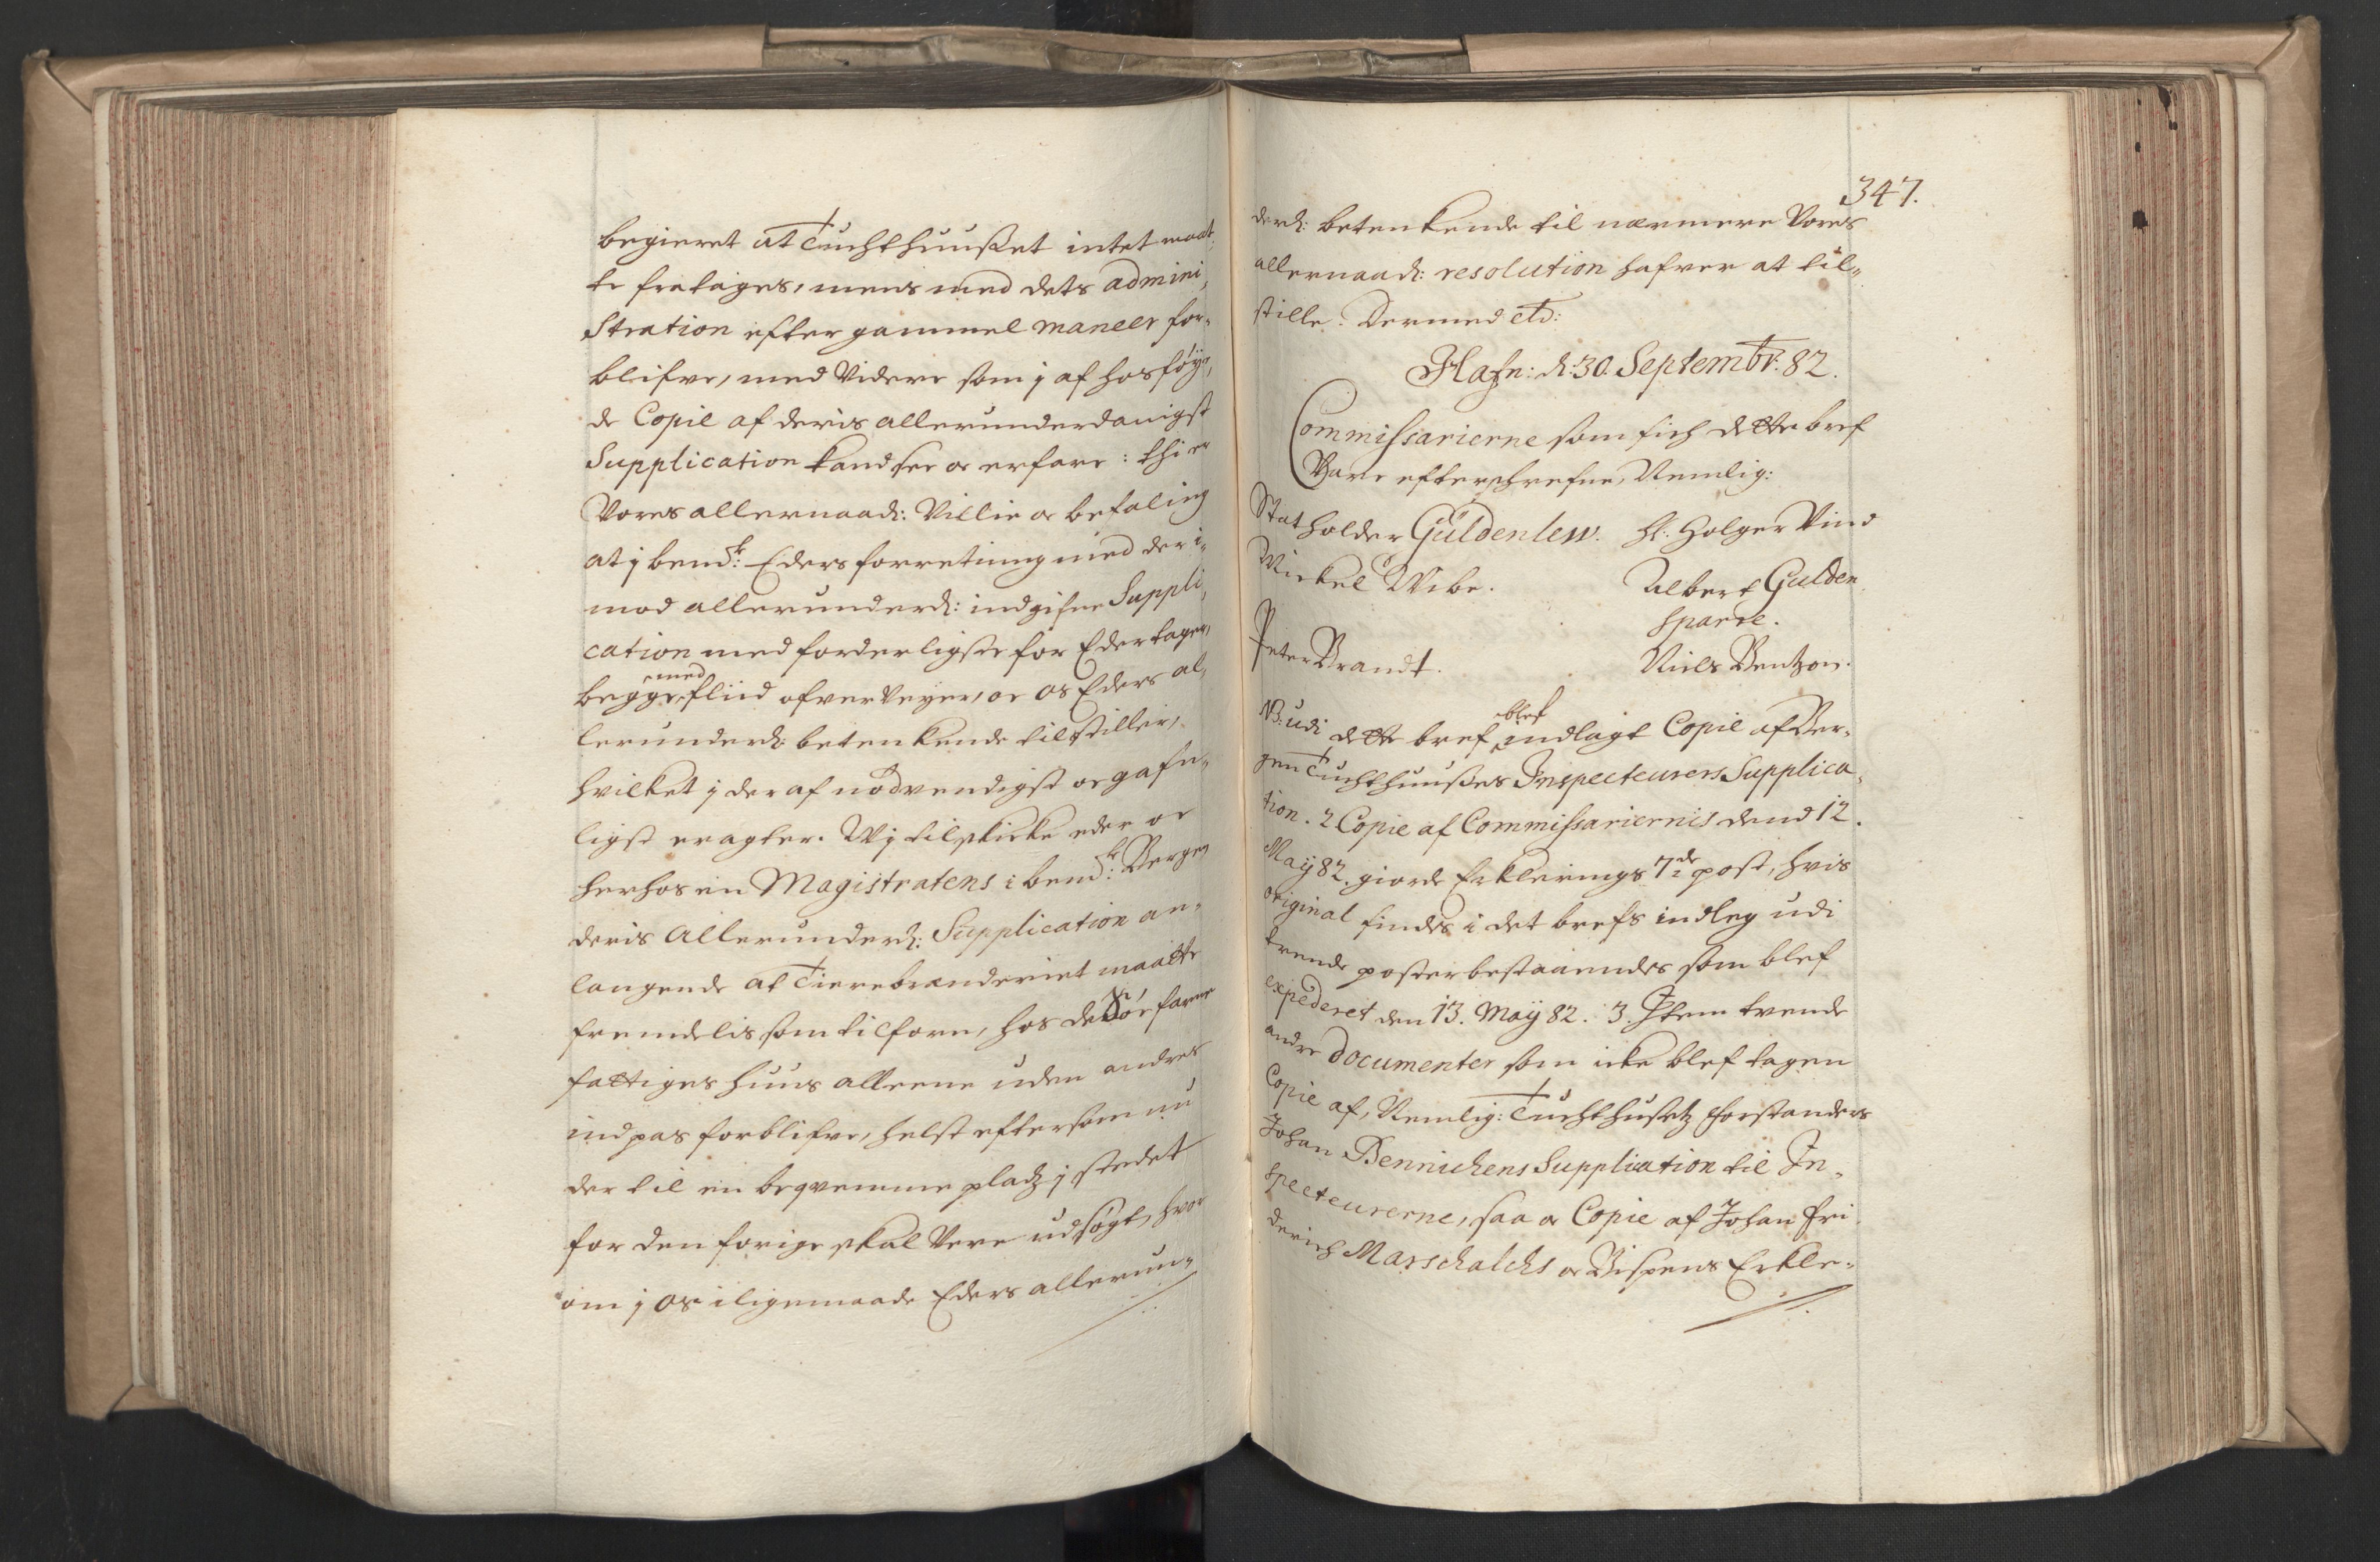 begieret at Tuchthuusset intet maat,
te fratages, mens med dets admini,
stration efter gammel maneer for,
blifve, med Videre som j af hosføye,
de Copie af deris allerunderdanigst
Supplication kand see oc erfare: thi er
Vores allernaad: Villie oc befaling
at j bemd:te Eders forretning med der i,
mod allerunderd: indgifne Suppli,
cation med forderligste for Eder tager,
begge med fliid ofverveyer, oc os Eders al,
lerunderd: betenkende tilstiller,
hvilket j deraf nødvendigst oc gafn,
ligst eragter. Wj tilskicke eder oc
herhos en Magistratens i bemd:te Bergen
deris Allerunderd: Supplication an,
langende at Tierebrænderiet maatte
fremdelis som tilforn, hos de Søefarne
fattiges huus alleene uden andres
indpas forblifve, helst eftersom nu
der til en beqvemme pladz j stedet
for den forige skal Vere udsøgt, hvor
om j os i ligemaade Eders allerun,
347.
derd: betenkende til nærmere Vores
allernaad: resolution hafver at til,
stille. Dermed etc:
Hafn: d: 30. Septembr: 82.
Commissarierne som fich dette bref
Vare efterschrefne, Nemlig:
Statholder Güldenlew. Hr: Holger Vind
Mickel Wibe. Albert Gulden
sparre.
Peter Brandt. Niels Bentzon.
NB: udi dette bref blef indlagt Copie af Ber,
gen Tuchthuusses Inspecteurers Supplica,
tion. 2 Copie af Commissariernis dend 12.
Maÿ 82. giorde Erklerings 7de post, hvis
original findes i det brefs indleg udi
trende poster bestaaendes som blef
expederet den 13. Maÿ 82. 3. Item tvende
andre documenter som icke blef tagen
Copie af, Nemlig: Tuchthusetz Forstanders
Johan Bennichens Supplication til In,
specteurerne, saa oc Copie af Johan Fri
derich Marschalchs oc Bispens Erkle,